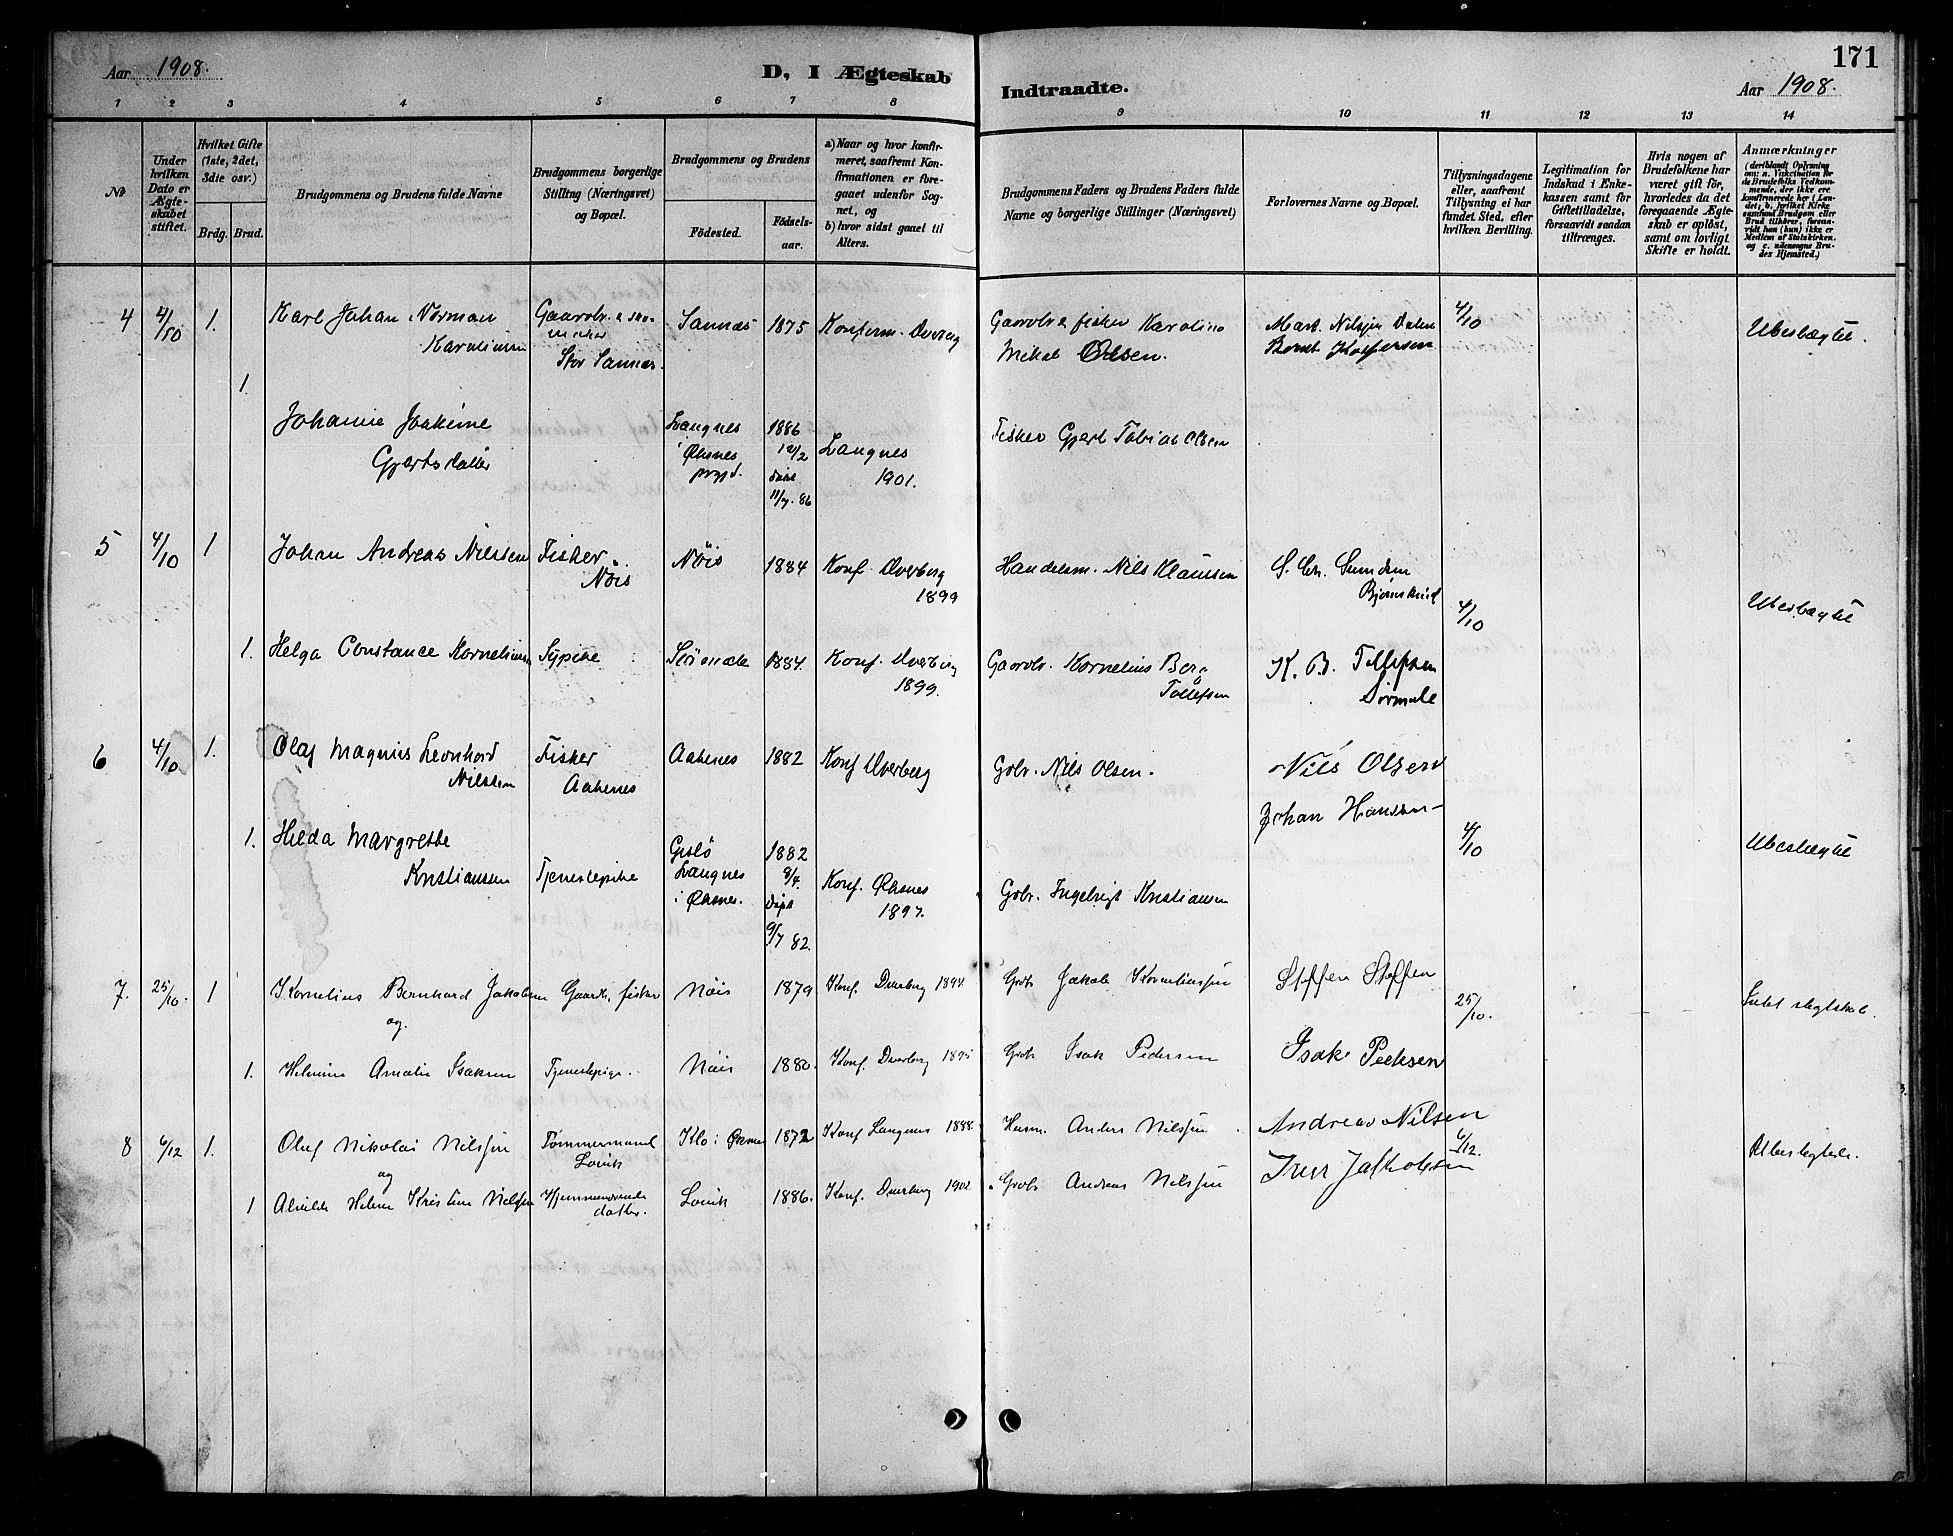 Aar 1908.
D, I Ægteskab
Indtraadte.
171
Aar 1908.
1 2 3 4 5 6 7 8 9 10 11 12 13 14
No
Under hvilken Dato er Ægteskabet stiftet.
Hvilket Gifte (1ste, 2det, 3die osv.)
Brdg. Brud.
Brudgommens og Brudens fulde Navne
Brudgommens borgerlige Stilling (Næringsvei) og Bopæl.
Brudgommens og Brudens
Fødested.
Fødselsaar.
a) Naar og hvor konfirmeret, saafremt Konfirmationen er foregaaet udenfor Sognet, og
b) hvor sidst gaaet til Alters.
Brudgommens Faders og Brudens Faders fulde Navne og borgerlige Stillinger (Næringsvei)
Forlovernes Navne og Bopæl.
Tillysningsdagene eller, saafremt Tillysning ei har fundet Sted, efter hvilken Bevilling.
Legitimation for Indskud i Enkekassen samt for Giftetilladelse, forsaavidt saadan tiltrænges.
Hvis nogen af Brudefolkene har været gift før, hvorledes da det foregaaende Ægteskab er opløst, samt om lovligt Skifte er holdt.
Anmærkninger
(deriblandt Oplysning om: a. Vaccination for de Brudefolks Vedkommende, der ikke ere konfirmerede her (Landet; b. hvilket Kirkesamfund Brudgom eller Brud tilhører, forsaavidt han (hun) ikke er Medlem af Statskirken, og c. udensogns Brudes Hjemsted.)
4 4/10 1. Karl Johan Norman Karoliussen
Gaardbr. & skomaker Stor Sannæs.
Sannæs 1875 Konferm. Dverberg
Gaardbr & fisker Karolius Mikal Olsen.
Mart. Nilssen Dalen
Berndt Kaspersen
4/10
Ubeslægtet.
1. Johanne Joakime Gjertsdatter
Langnes i Øksnes prgd.
1886 12/2 døbt 11/7. 86
Langnes 1901.
Fisker Gjert Tobias Olsen
5 4/10 1 Johan Andreas Nilssen
Fisker Nöis
Nöis 1884 Konf. Dverberg 1899
Handelsm. Nils Klaussen
S. Chr. Sundsen
4/10
Ubeslægtet
1. Helga Constance Korneliussen
Sypike
1884. Konf. Dverberg 1899.
Gaardbr. Kornelius Berg Tollefsen
K. B. Tollefsen
6 4/10 1. Olaf Magnus Leonhard Nilssen
Fisker Aakenes
Aakenes 1882 Konf Dverberg
Gbr. Nils Olsen.
Nils Olsen
Johan Hansen
4/10
Ubeslægtet
1. Helda Margrethe Kristiansen
Tjenestepike
Gislö Langnes i Øksnes.
1882 8/4. döpt 9/7 82.
Konf. Øksnes 1897.
Gbr. Ingebrigt Kristiansen
7. 25/10. 1 Kornelius Bernhard Jakobsen og
Gaardb. fisker
Nöis 1879 Konf. Dverberg 1894.
Grbr. Jakob Korneliussen
Steffen Steffen
25/10.
1. Helmine Amalie Isaksen
Tjenestepige.
Nöis 1880. Konf. Dverberg 1895
Grbr Isak Pedersen
Isak Pedersen
8 6/12 1. Oluf Nikolai Nilssen og
Tømmermand Lovik
Klo i Øksnes 1872 Konf Langnes 1888.
Husm. Anders Nilssen
Andreas Nilsen
6/12.
Ubeslegtede.
1 Alvilde Helene Kristine Nielsen
Hjemmeværende datter.
Lovik 1886. Konf. Dverberg 1902
Grbr Andreas Nilssen
Iver Jakobsen